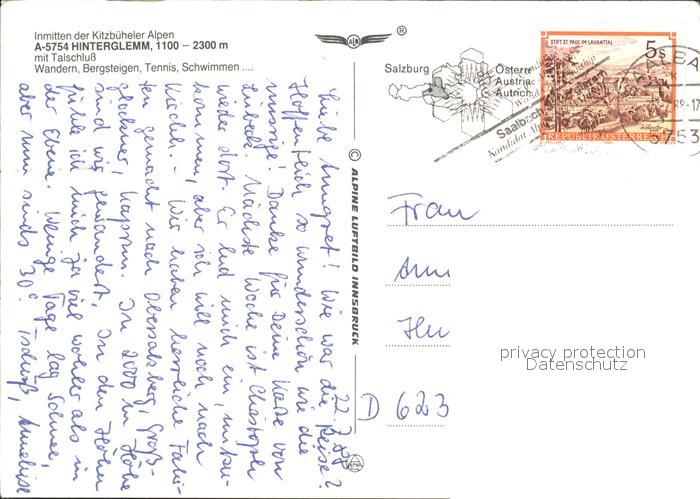 Inmitten der Kitzbüheler Alpen
A-5754 HINTERGLEMM, 1100 – 2300 m
mit Talschluß
Wandern, Bergsteigen, Tennis, Schwimmen ....
®
Salzburg
Österre
Austria
Autrich
Saalbach
Kandidat
STIFT ST. PAUL IM LAVANTTAL
5 S
REPUBLIK ÖSTERREICH
5753
© ALPINE LUFTBILD INNSBRUCK
22.7.88
Liebe Annegret! Wie war die Reise?
Hoffentlich so wunderschön wie die
vorige. Danke für Deine Karte von
Lübeck. Nächste Woche ist Christoph
wieder dort. Er lud mich ein, mitzu-
kommen, aber ich will noch nach
. – Wir haben herrliche Fahr-
ten gemacht nach Obersalzberg, Groß-
glockner, Kaprun. In 2000 m Höhe
sind wir gewandert. In den Höhen
fühle ich mich ja viel wohler als in
der Ebene. Wenige Tage lag Schnee,
aber nun sinds 30°. Tschüß, Anneliese
Frau
Ann
D 623
privacy protection
Datenschutz